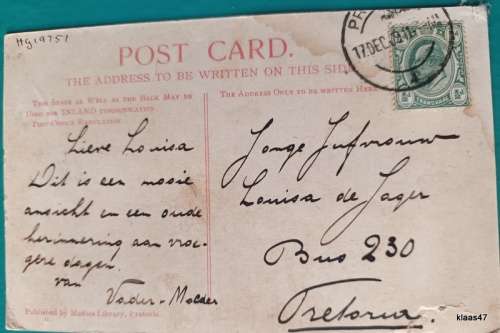 Hg 19751
POST CARD.
THE ADDRESS TO BE WRITTEN ON THIS SIDE
This Space as Well as the Back May be
Used for INLAND Communication
Post Office Regulation
The Address Only to be written Here
Lieve Louisa
Dit is een mooie
ansicht en een oude
herinnering aan vroe-
gere dagen.
van
Vader-Moeder
Published by Modern Library, Pretoria.
Jonge Jufvrouw
Louisa de Jager
Bus 230
Pretoria
PR
17 DEC
TRANSVAAL
½d
½d
klaas47